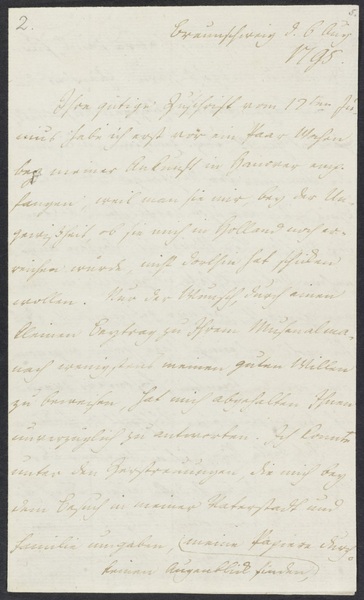 2.
Braunschweig d. 6 Aug
1795.
Ihre gütige Zuschrift vom 17ten Ju-
nius habe ich erst vor ein Paar Wochen
bey meiner Ankunft in Hanover emp-
fangen, weil man sie mir, bey der Un-
gewißheit, ob sie mich in Holland noch er-
reichen würde, nicht dorthin hat schicken
wollen. Nur der Wunsch, durch einen
kleinen Beytrag zu Ihrem Musenalma-
nach wenigstens meinen guten Willen
zu beweisen, hat mich abgehalten Ihnen
unverzüglich zu antworten. Ich konnte
unter den Zerstreuungen, die mich bey
dem Besuch in meiner Vaterstadt und
Familie umgaben, (meine Papiere durch-
keinen Augenblick finden,